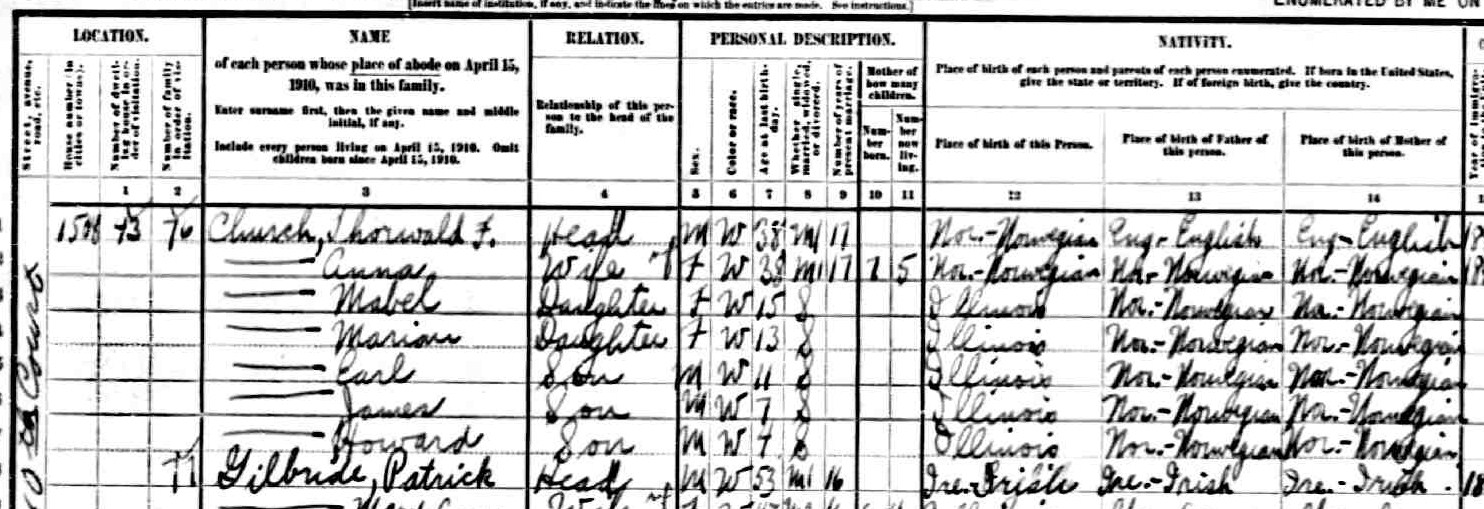 [Insert name of institution, if any, and indicate the lines on which the entries are made. See instructions.]
ENUMERATED BY ME ON
LOCATION.
Street, avenue, road, etc.
House number (in cities or towns).
Number of dwelling house in order of visitation.
Number of family in order of visitation.
NAME
of each person whose place of abode on April 15, 1910, was in this family.
Enter surname first, then the given name and middle initial, if any.
Include every person living on April 15, 1910. Omit children born since April 15, 1910.
RELATION.
Relationship of this person to the head of the family.
PERSONAL DESCRIPTION.
Sex.
Color or race.
Age at last birthday.
Whether single, married, widowed, or divorced.
Number of years of present marriage.
Mother of how many children.
Number born.
Number now living.
NATIVITY.
Place of birth of each person and parents of each person enumerated. If born in the United States, give the state or territory. If of foreign birth, give the country.
Place of birth of this Person.
Place of birth of Father of this person.
Place of birth of Mother of this person.
1 2 3 4 5 6 7 8 9 10 11 12 13 14
Court
73 76 Church, Thorwald F. Head M W 38 M1 17 Nor.-Norwegian Eng-English Eng-English
Anna Wife F W 38 M1 17 7 5 Nor.-Norwegian Nor.-Norwegian Nor.-Norwegian
Mabel Daughter F W 15 S Illinois Nor.-Norwegian Nor.-Norwegian
Marion Daughter F W 13 S Illinois Nor.-Norwegian Nor.-Norwegian
Earl Son M W 11 S Illinois Nor.-Norwegian Nor.-Norwegian
James Son M W 7 S Illinois Nor.-Norwegian Nor.-Norwegian
Howard Son M W 4 S Illinois Nor.-Norwegian Nor.-Norwegian
77 Gilbride, Patrick Head M W 53 M1 16 Ire.-Irish Ire.-Irish Ire.-Irish